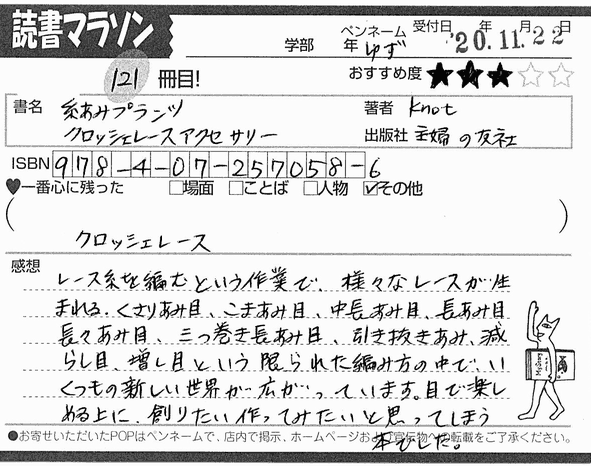 読書マラソン
学部 年 ペンネーム ゆず 受付日 '20年 11月 22日
121 冊目! おすすめ度 ★★★☆☆
書名 糸あみプランツ 著者 Knot
クロッシェレースアクセサリー 出版社 主婦の友社
ISBN 978-4-07-257058-6
♥一番心に残った □場面 □ことば □人物 ☑その他
(クロッシェレース)
感想
レース糸を編むという作業で、様々なレースが生
まれる。くさりあみ目、こまあみ目、中長あみ目、長あみ目
長々あみ目、三つ巻き長あみ目、引き抜きあみ、減
らし目、増し目という限られた編み方の中で、い
くつもの新しい世界が広がっています。目で楽し
める上に、創りたい作ってみたいと思ってしまう
本でした。
●お寄せいただいたPOPはペンネームで、店内で掲示、ホームページおよび宣伝物への転載をご了承ください。